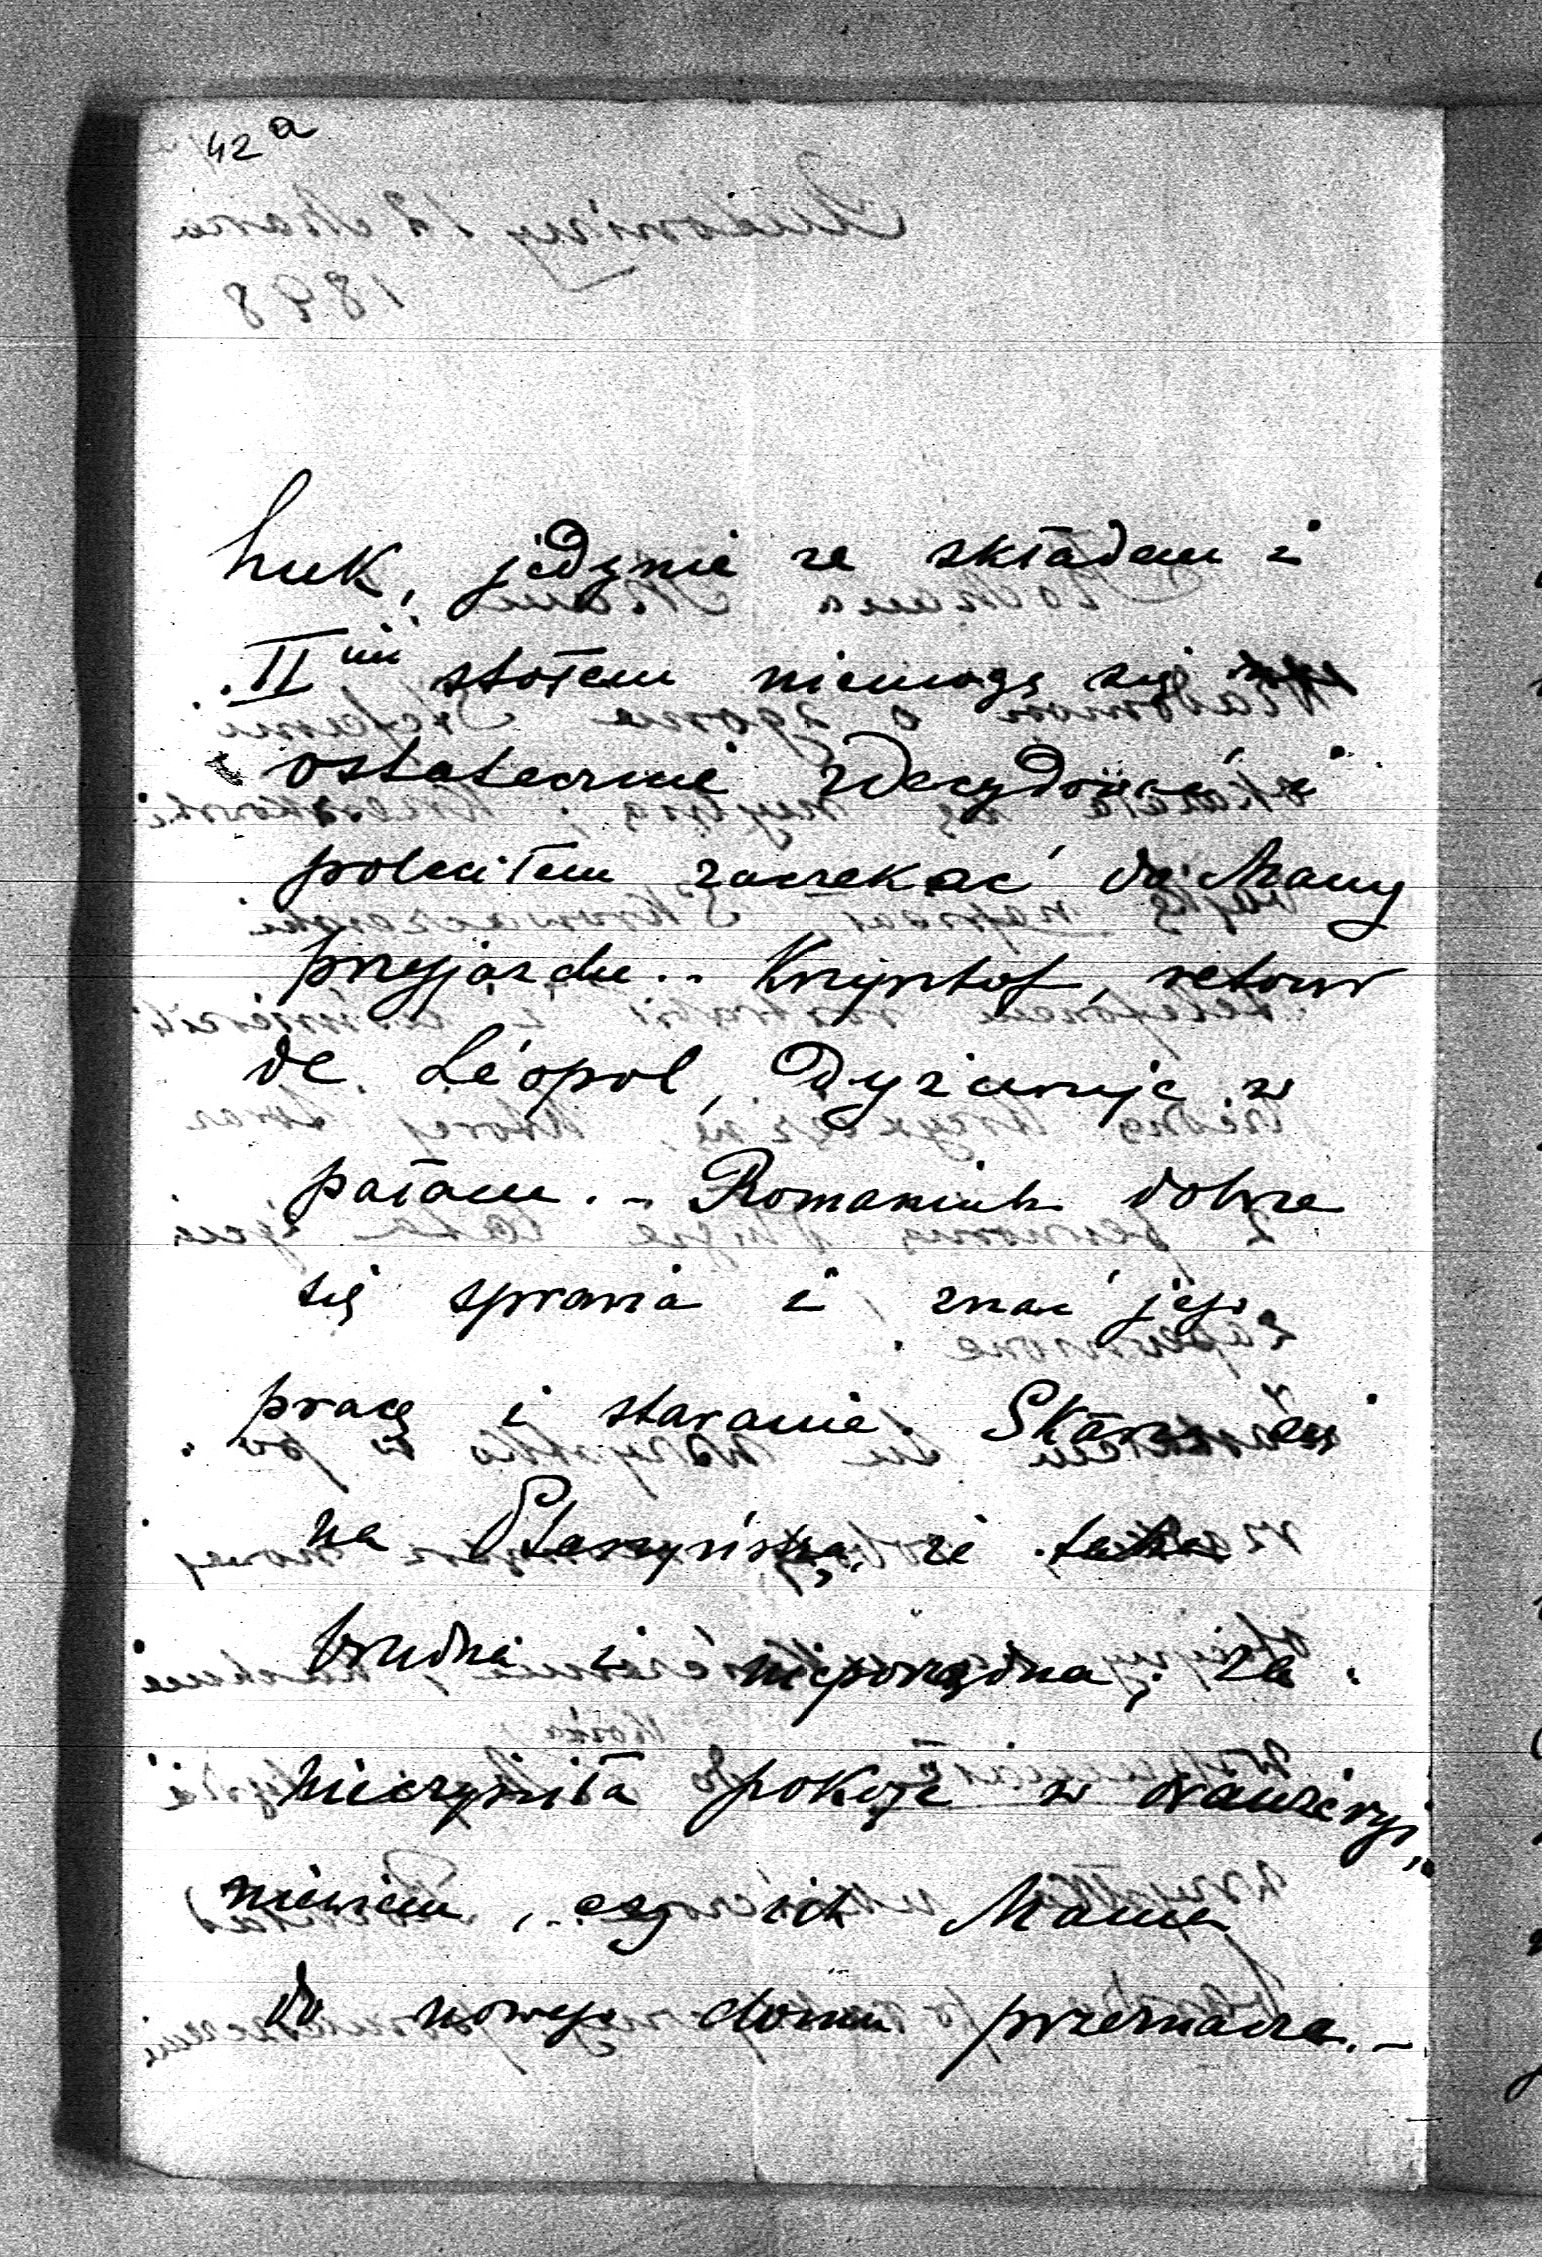 42 a
huk, jedynie ze składem i
II mi stołem niemogę się
ostatecznie zdecydować i
poleciłem zaczekać do Mamy
przyjazdu.. Krzysztof, retour
de Léopol, dyżuruje w
pałacu. - Romaniuk dobrze
się sprawia i znać jego
pracę i staranie. Skarży się
na Staszyńską, że taka
brudna i nieporządna; za
nieczyściła pokoje w oranżeryi,
niewiem, czy ich Mama
do nowego domu przeznacza. -